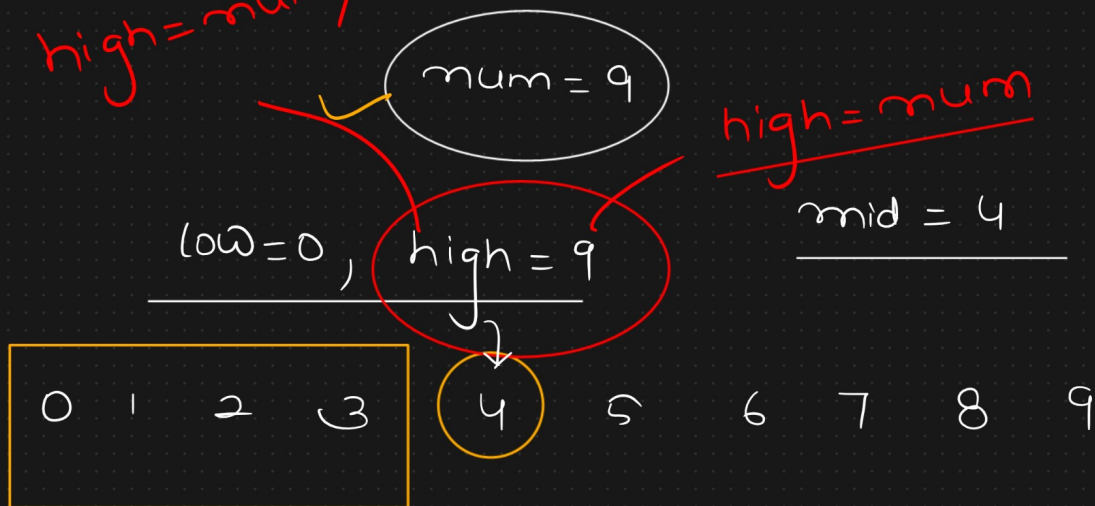 high = num
num = 9
high = num
mid = 4
low = 0, high = 9
0 1 2 3 4 5 6 7 8 9